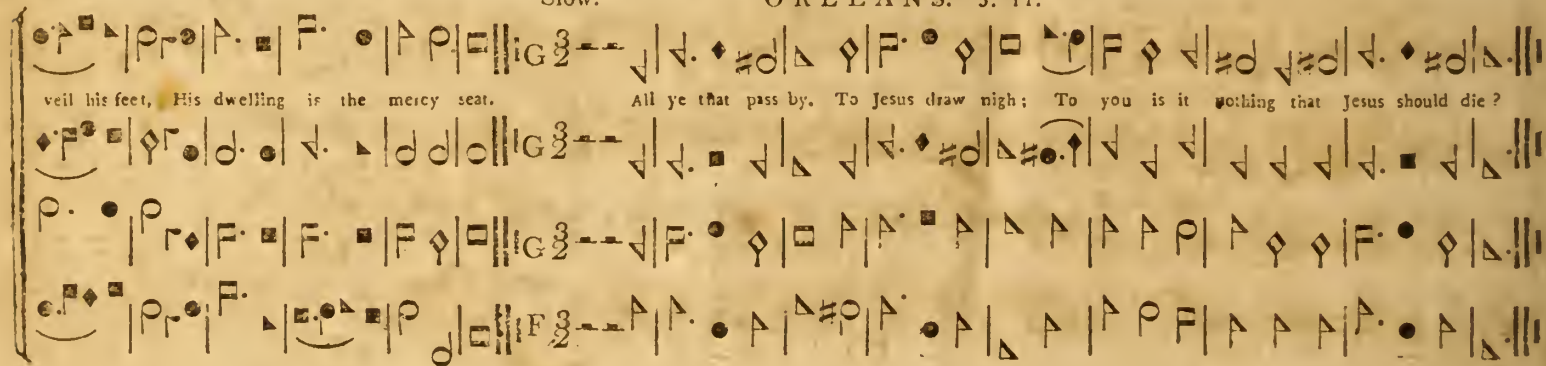 Slow. ORLEANS. 5. 11.
veil his feet, His dwelling is the mercy seat. All ye that pass by. To Jesus draw nigh; To you is it nothing that Jesus should die?
G 3/2
G 3/2
G 3/2
F 3/2